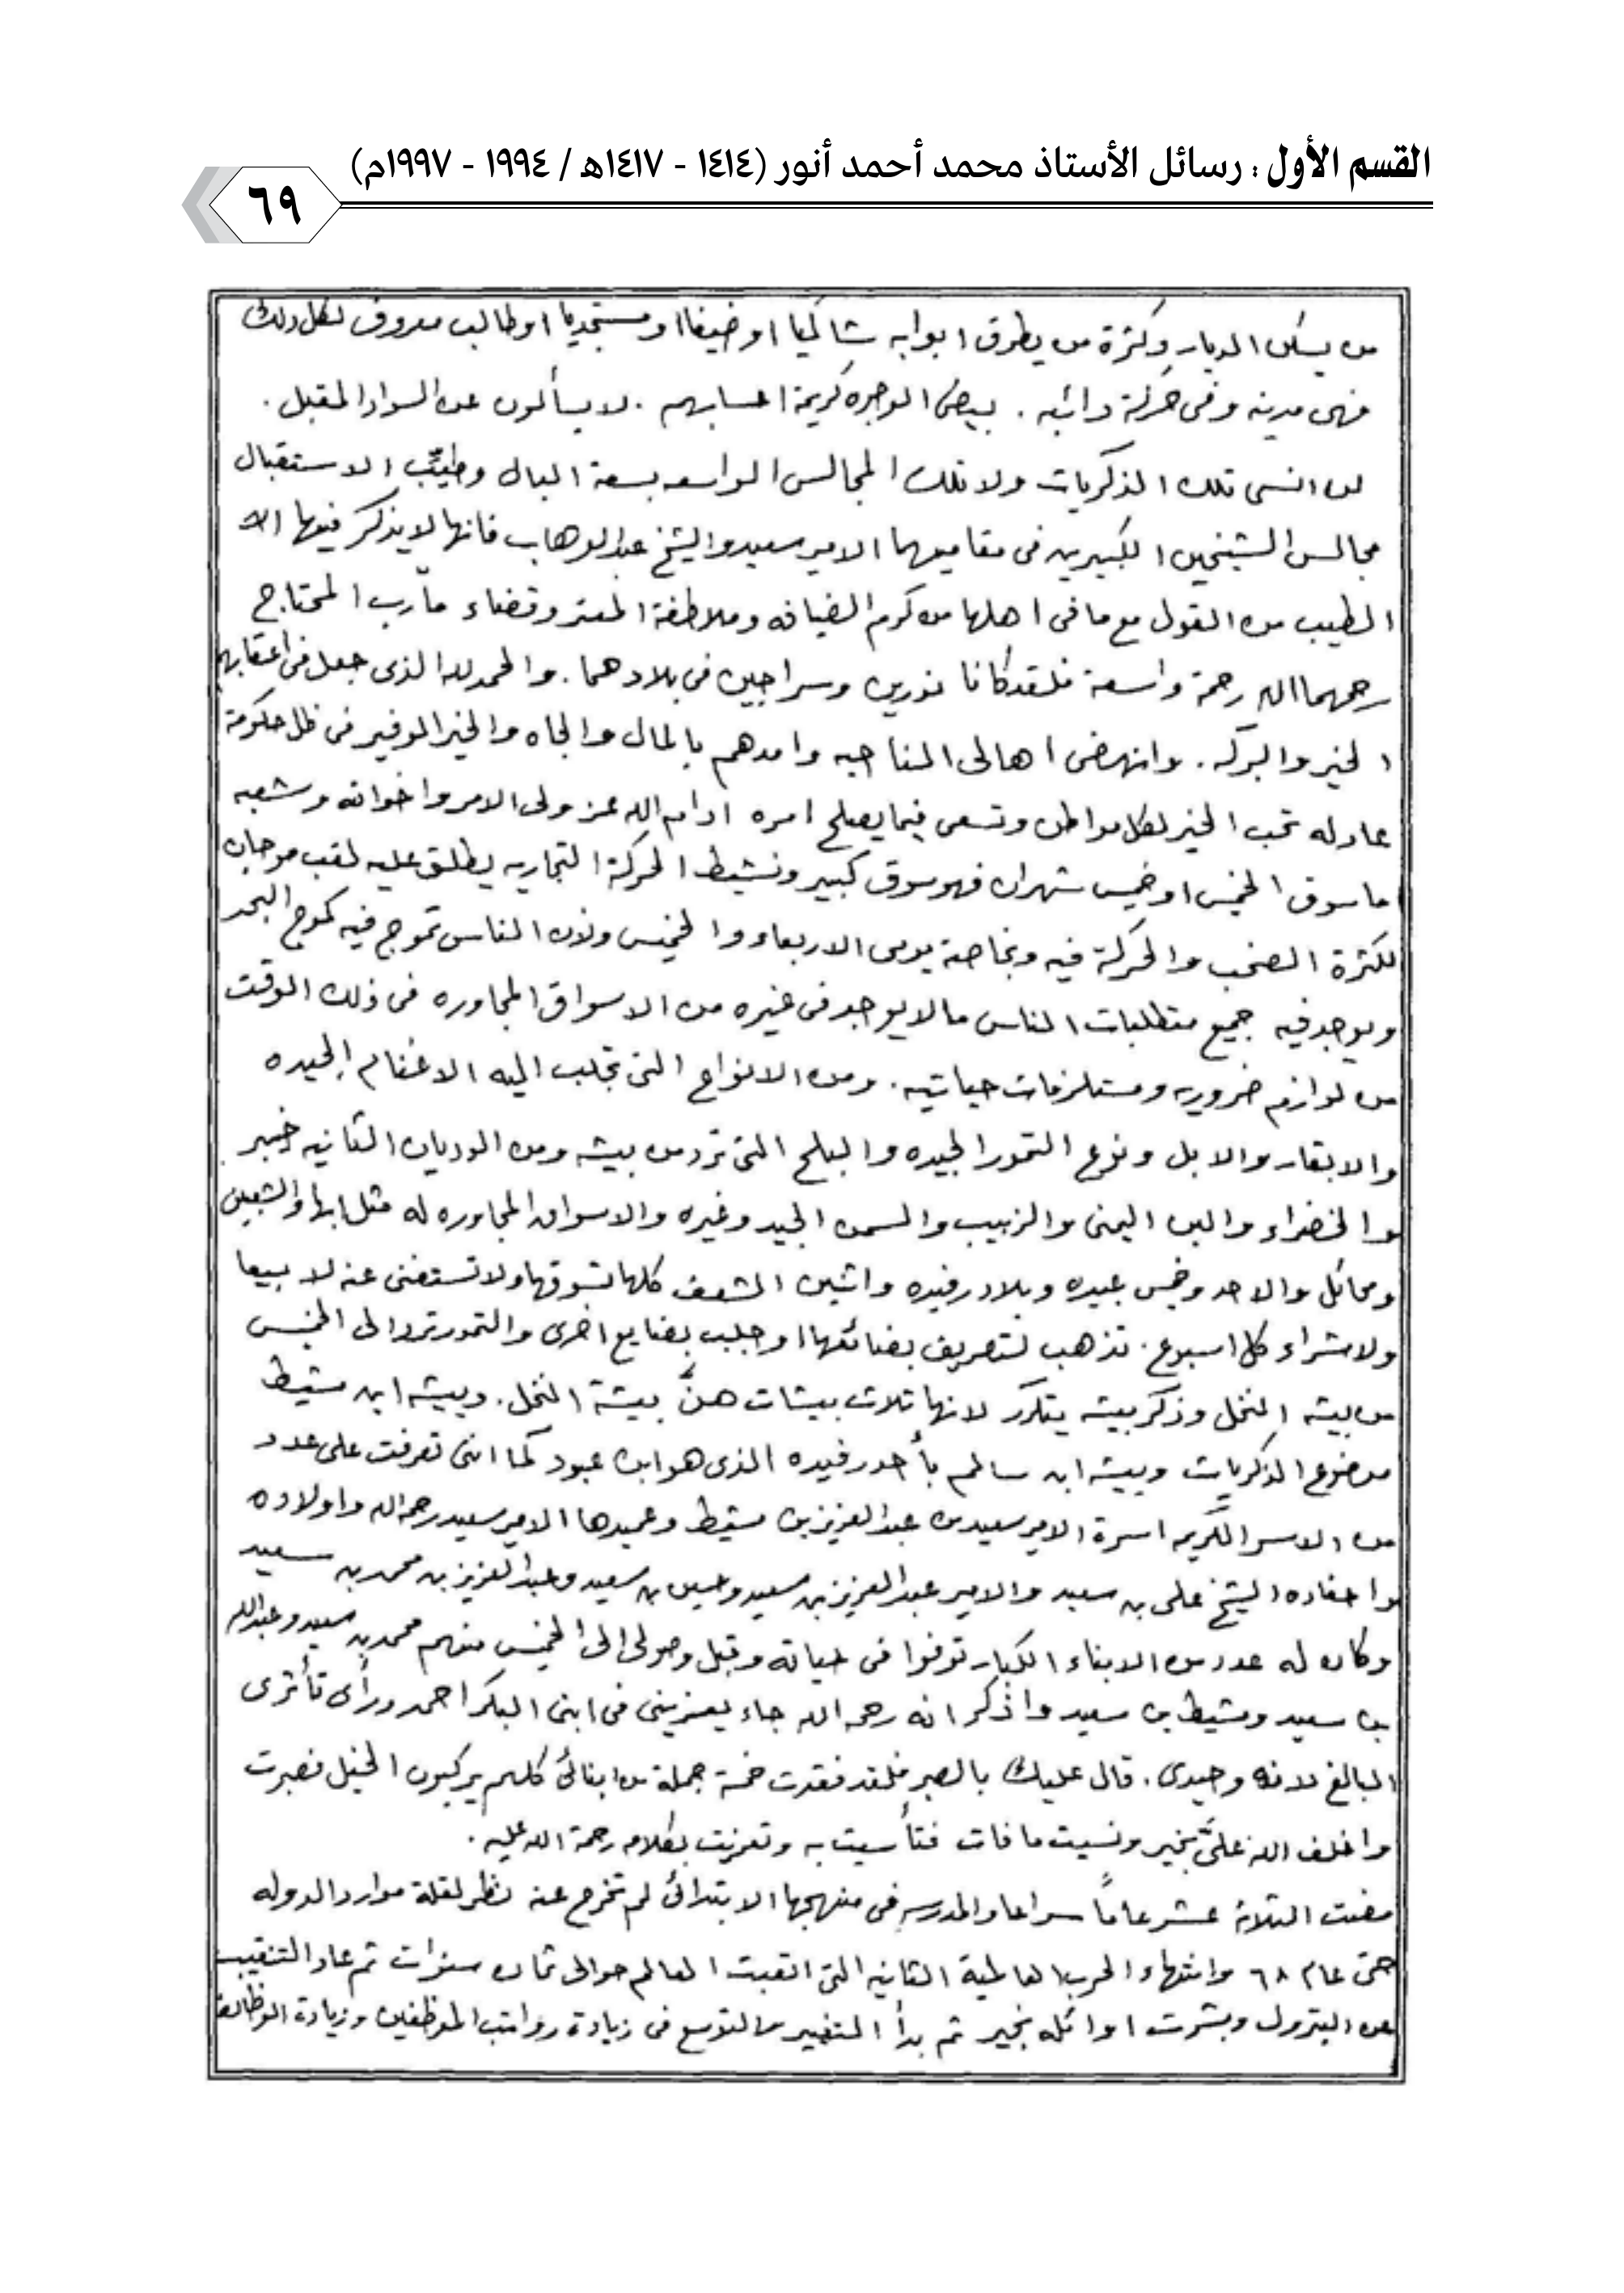 القسم الأول : رسائل الأستاذ محمد أحمد أنور (١٤١٤ - ١٤١٧هـ / ١٩٩٤ - ١٩٩٧م)
٦٩
من يسكن الديار وكثرة من يطرق ابوابه شاكيا او ضيفا او مستجديا او طالب معروف لكل ذلك
فهى مدينه وفى حركة دائبه . بيض الوجوه كريمة احسابهم . لا يسألون عن السواد المقبل .
لن انسى تلك الذكريات ولا تلك المجالس الواسعه بسعة البال وطيّب الاستقبال
مجالس الشيخين الكبيرين فى مقاميهما الامير سعيد والشيخ عبدالوهاب فانها لا يذكر فيها الا
الطيب من القول مع ما فى اهلها من كرم الضيافه وملاطفة المعتر وقضاء مآرب المحتاج
رحمهما الله رحمة واسعة فلقد كانا نورين وسراجين فى بلادهما . والحمد لله الذى جعل فى اعقابهم
الخير والبركه . وانهض اهالى المناحيه وامدهم بالمال والجاه والخير الوفير فى ظل حكومة
عادله تحب الخير لكل مواطن وتسعى فيما يصلح امره ادام الله عز ولى الامر واخوانه وشعبه
اما سوق الخميس او خميس شهران فهو سوق كبير ونشيط الحركة التجاريه يطلق عليه لقب موجان
لكثرة الصخب والحركة فيه وبخاصة يومى الاربعاء والخميس ولان الناس تموج فيه كموج البحر
ويوجد فيه جميع متطلبات الناس ما لا يوجد فى غيره من الاسواق المجاوره فى ذلك الوقت
من لوازم ضروريه ومستلزمات حياتيه . ومن الانواع التى تجلب اليه الاغنام الجيده
والابقار والابل ونوع التمور الجيده والبلح التى ترد من بيشه ومن الوديان الثانيه خيبر
والخضراء والبن اليمنى والزبيب والسمن الجيد وغيره والاسواق المجاوره له مثل ابها والشعبين
ومحائل والاحد وخميس عبيده وبلاد رفيده واثنين الشعف كلها تسوقها ولا تستغنى عنه لا بيعا
ولا شراء كل اسبوع . تذهب لتصريف بضائعها او جلب بضايع اخرى والتمور ترد الى الخميس
من بيشه النخل وذكر بيشه يتكرر لانها ثلاث بيشات هنّ بيشة النخل . وبيشه ابن مشيط
موضوع الذكريات وبيشه ابن سالم بأحد رفيده الذى هو ابن عبود كما اننى تعرفت على عدد
من الاسر الكريمه اسرة الامير سعيد بن عبدالعزيز بن مشيط وعميدها الامير سعيد رحمه الله واولاده
واحفاده الشيخ على بن سعيد والامير عبدالعزيز بن سعيد وحسين بن سعيد وعبدالعزيز بن محمد بن سعيد
وكان له عدد من الابناء الكبار توفوا فى حياته وقبل وصولى الى الخميس منهم محمد بن سعيد وعبدالله
بن سعيد ومشيط بن سعيد واذكر انه رحمه الله جاء يعزينى فى ابنى البكر احمد ورأى تأثرى
البالغ لانه وحيدى . قال عليك بالصبر فلقد فقدت خمسة جملة من ابنائى كلهم يركبون الخيل فصبرت
واخلف الله علىّ بخير ونسيت ما فات فتأسيت به وتعزيت بكلامه رحمة الله عليه .
مضت الثلاثة عشر عاماً سراعا والمدرسه فى منهجها الابتدائى لم تخرج عنه نظر لقلة موارد الدوله
حتى عام ٦٨ وانتهاء الحرب العالمية الثانيه التى اتعبت العالم حوالى ثمان سنوات ثم عاد التنقيب
عن البترول وبشرت اوائله بخير ثم بدأ التغيير والتوسع فى زيادة رواتب الموظفين وزيادة الوظائف